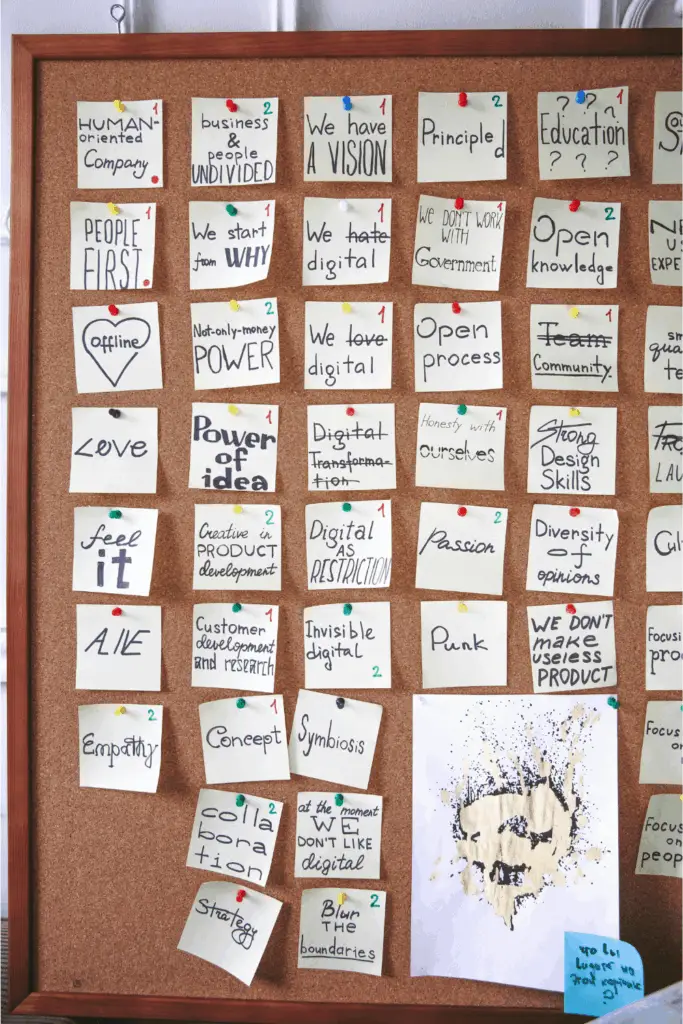 HUMAN- 1
oriented
Company
business 2
&
people
UNDIVIDED
We have 1
A VISION
Principled 2
? ? ? 1
Education
? ? ? ?
PEOPLE 1
FIRST
We start 1
from WHY
We hate 1
digital
WE DON'T WORK 1
WITH
Government
Open 2
knowledge
EXPE
offline
Not-only-money 2
POWER
We love 1
digital
Open 1
process
Team 1
Community
sm
qua
te
LOVE
Power 1
of
idea
Digital
Transforma-
tion
Honesty with 1
ourselves
Strong
Design
Skills
feel 2
it
Creative in 2
PRODUCT
development
Digital 1
AS
RESTRICTION
Passion 2
Diversity
of
opinions
Cul
A.IE
Customer 1
development
and research
Invisible
digital
2
Punk
WE DON'T
make
useless
PRODUCT
Focusi
pro
Empathy 2
Concept 1
Symbiosis
Focus
on
colla 2
bora
tion
at the moment
WE
DON'T LIKE
digital
Focus
on
peop
Strategy
Blur 2
THE
boundaries